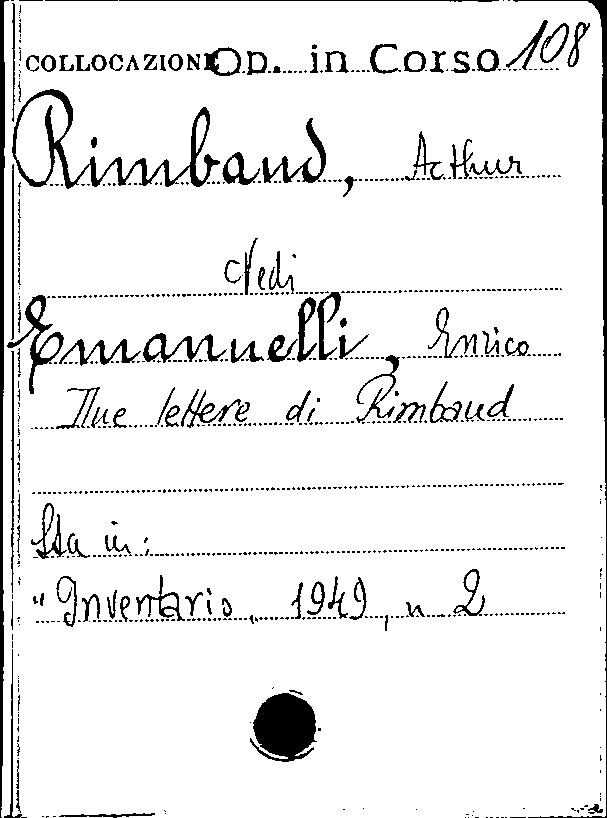 COLLOCAZIONE Op. in Corso 108
Rimbaud, Arthur
Vedi
Emanuelli, Enrico
Due lettere di Rimbaud
Sta in:
"Inventario, 1949, n 2